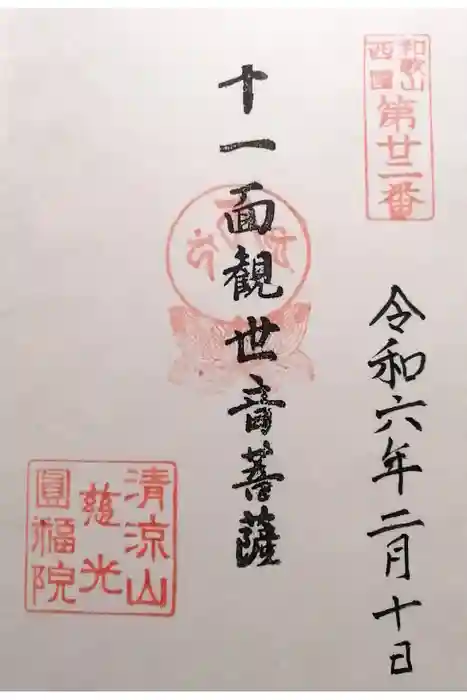 和歌山
西国
第廿二番
令和六年二月十日
十一面観世音菩薩
清涼山
慈光
圓福院